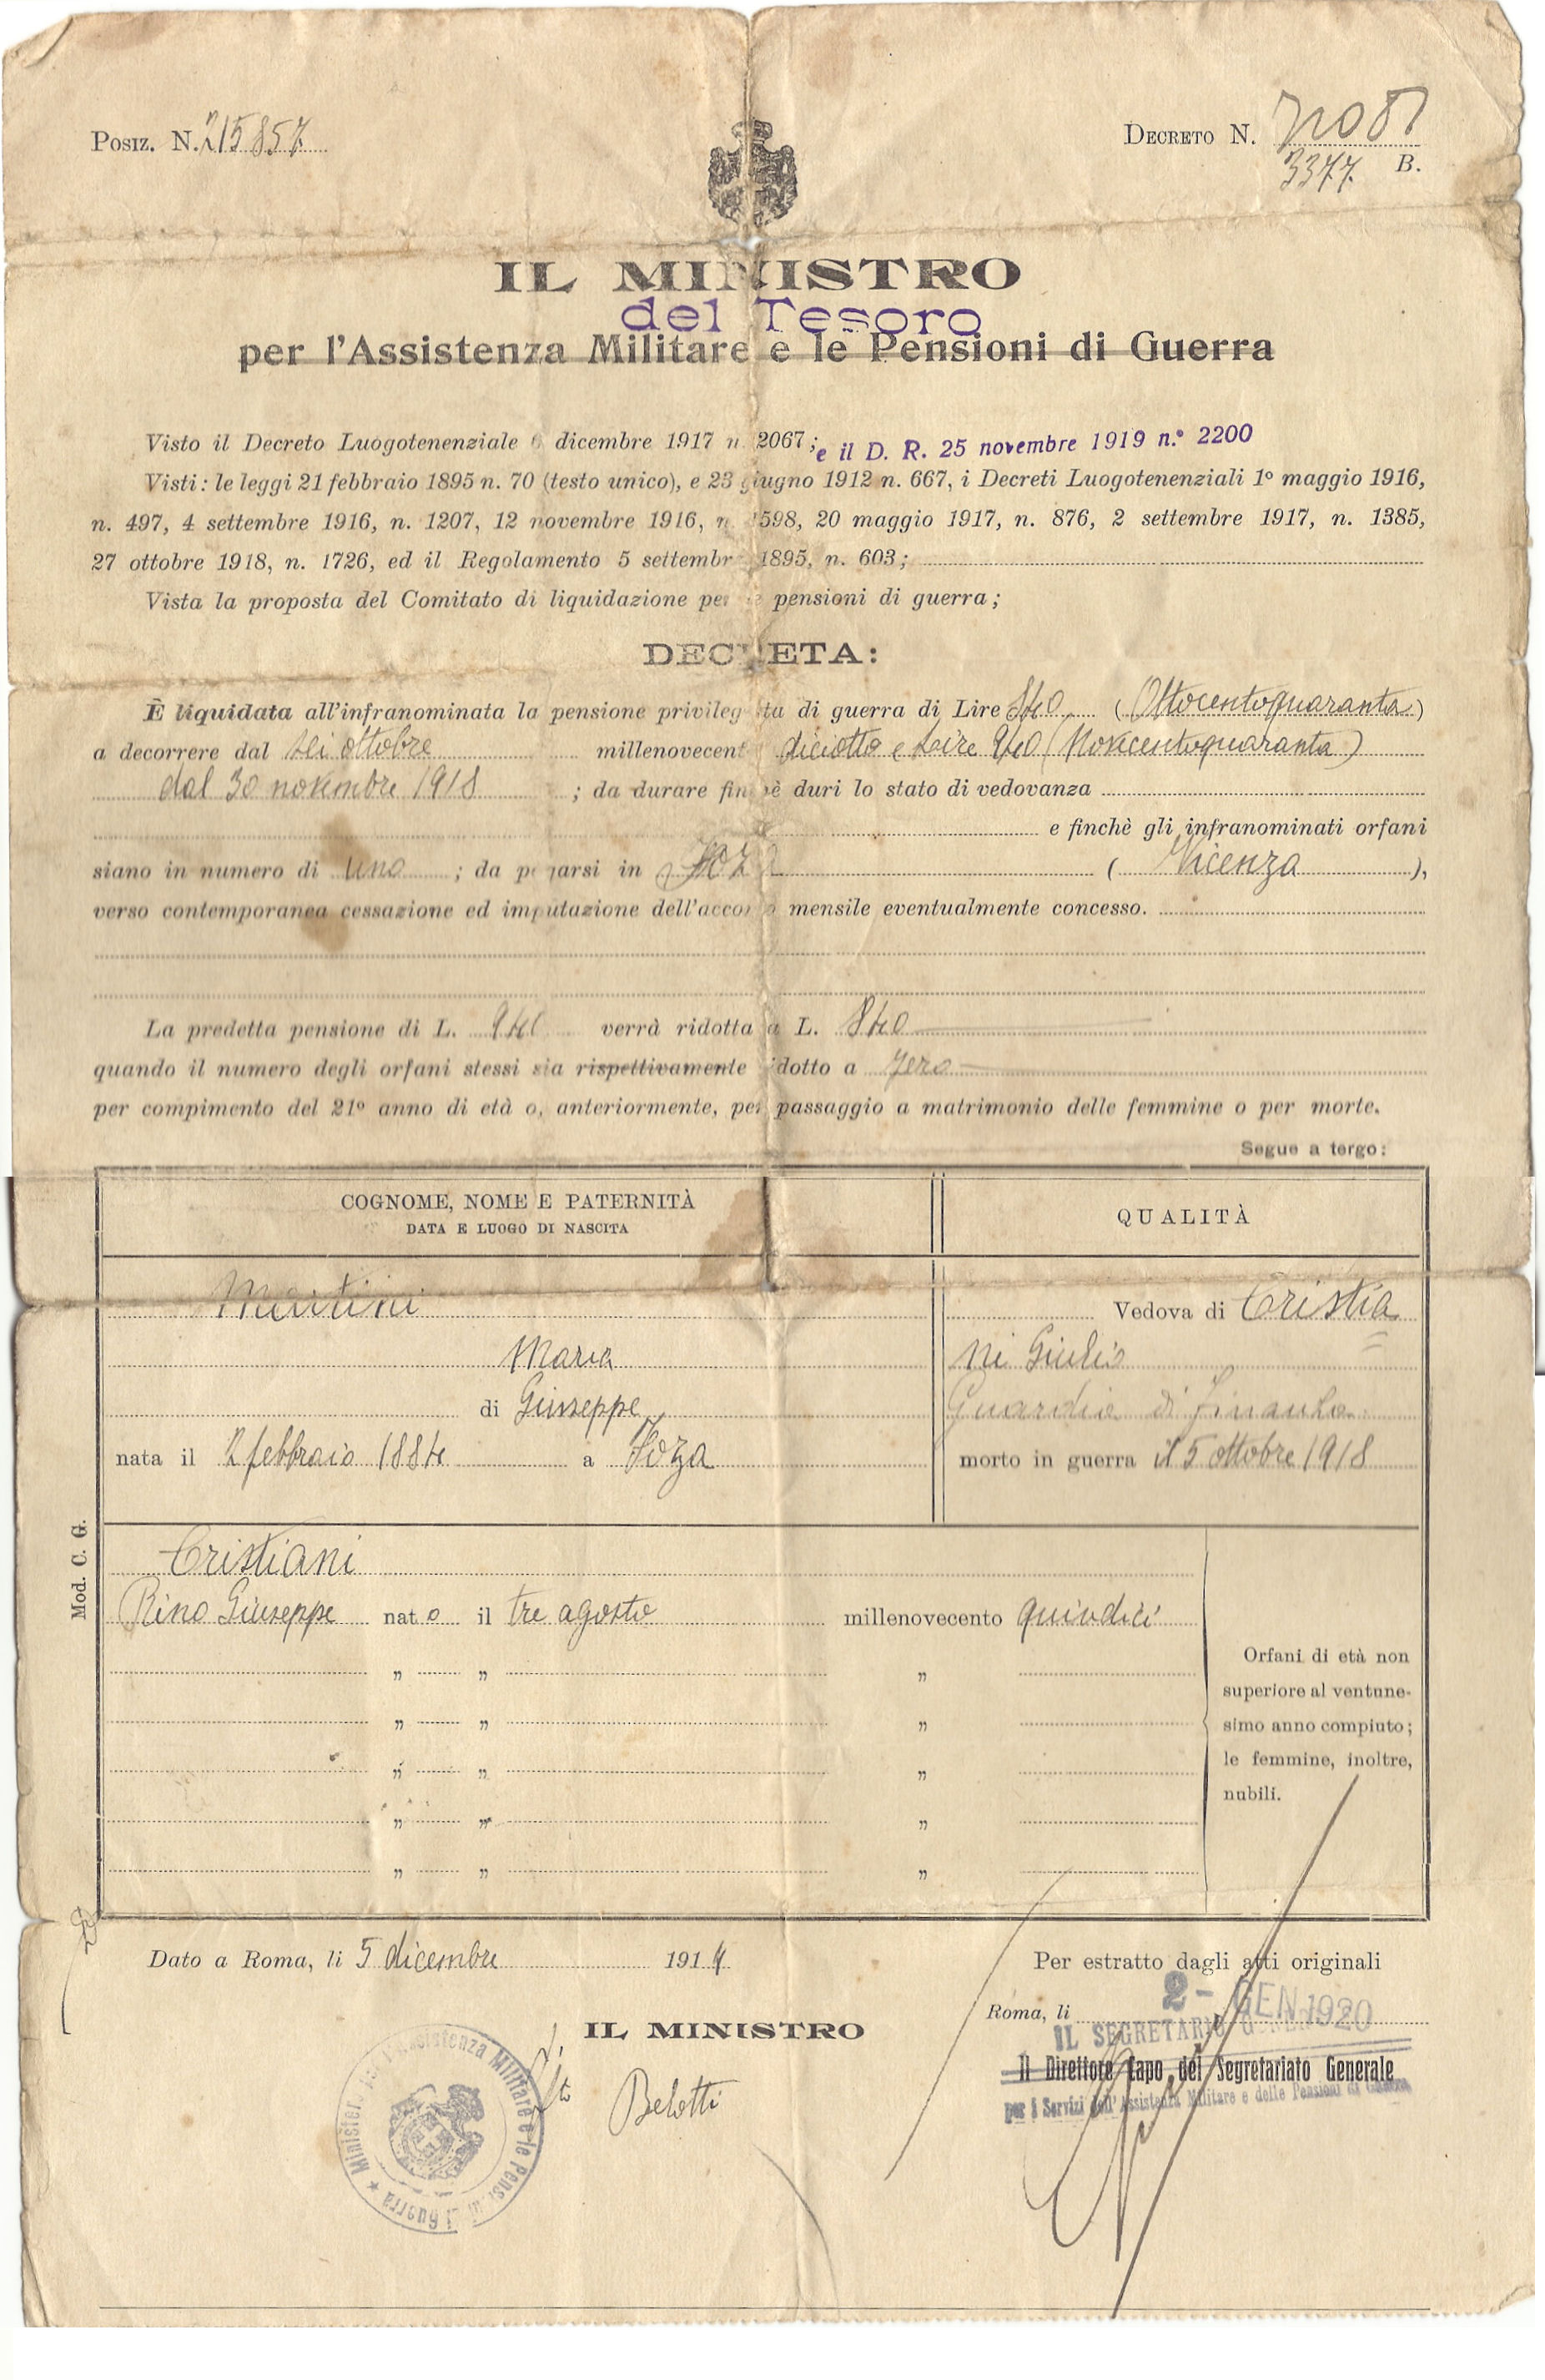 Posiz. N. 215857
Decreto N.
3377. B.
IL MINISTRO
del Tesoro
per l'Assistenza Militare e le Pensioni di Guerra
Visto il Decreto Luogotenenziale 6 dicembre 1917 n. 2067; e il D. R. 25 novembre 1919 n.° 2200
Visti: le leggi 21 febbraio 1895 n. 70 (testo unico), e 23 giugno 1912 n. 667, i Decreti Luogotenenziali 1° maggio 1916,
n. 497, 4 settembre 1916, n. 1207, 12 novembre 1916, n. 1598, 20 maggio 1917, n. 876, 2 settembre 1917, n. 1385,
27 ottobre 1918, n. 1726, ed il Regolamento 5 settembre 1895, n. 603;
Vista la proposta del Comitato di liquidazione per le pensioni di guerra;
DECRETA:
È liquidata all'infranominata la pensione privilegiata di guerra di Lire 840 (Ottocentoquaranta)
a decorrere dal sei ottobre millenovecento diciotto e Lire 940 (Novecentoquaranta)
dal 30 novembre 1918 ; da durare finchè duri lo stato di vedovanza
e finchè gli infranominati orfani
siano in numero di uno ; da pagarsi in Foza ( Vicenza ),
verso contemporanea cessazione ed imputazione dell'acconto mensile eventualmente concesso.
La predetta pensione di L. 940 verrà ridotta a L. 840
quando il numero degli orfani stessi sia rispettivamente ridotto a zero
per compimento del 21° anno di età o, anteriormente, per passaggio a matrimonio delle femmine o per morte.
Segue a tergo:
COGNOME, NOME E PATERNITÀ
DATA E LUOGO DI NASCITA
QUALITÀ
Martini
Vedova di Cristia
Maria
ni Giulio
di Giuseppe
Guardia di Finanza
nata il 2 febbraio 1884 a Foza
morto in guerra il 5 ottobre 1918
Cristiani
Rino Giuseppe nato il tre agosto millenovecento quindici
" " "
" " "
" " "
" " "
" " "
Orfani di età non
superiore al ventune-
simo anno compiuto;
le femmine, inoltre,
nubili.
Mod. C. G.
Dato a Roma, lì 5 dicembre 1919
Per estratto dagli atti originali
Roma, lì 2 - GEN 1920
IL MINISTRO
IL SEGRETARIO GENERALE
Il Direttore Capo del Segretariato Generale
per i Servizi dell'Assistenza Militare e delle Pensioni di Guerra
Belotti
Ministero per l'Assistenza Militare e le Pensi. di Guerra